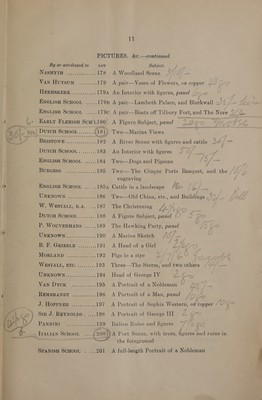 11
PICTURES. &c.—continued.
By or attributed to LOT Subject.
NASMYTH 178 A Woodland Scene
VAN HUYSUM 179 A pair—Vases of Flowers, on copper
HEERMSKERK 179A An Interior with figures, panel
ENGLISH SCHOOL 179B A pair—Lambeth Palace, and Blackwall
ENGLISH SCHOOL 179C A pair—Boats off Tilbury Fort, and The Nore
EARLY FLEMISH SCH'L 180 A Figure Subject, panel
DUTCH SCHOOL 181 Two—Marine Views
BRISTOWE 182 A River Scene with figures and cattle
DUTCH SCHOOL 183 An Interior with figures
ENGLISH SCHOOL 184 Two—Dogs and Pigeons
BURGESS 185 Two—The Cinque Ports Banquet, and the engraving
ENGLISH SCHOOL 185A Cattle in a landscape
UNKNOWN 186 Two—Old China, etc., and Buildings
W. WESTALL, R.A. 187 The Christening
DUTCH SCHOOL 188 A Figure Subject, panel
P. WOUVERMANS 189 The Hawking Party, panel
UNKNOWN 190 A Marine Sketch
B. F. GRIBBLE 191 A Head of a Girl
MORLAND 192 Pigs in a stye
WESTALL, ETC. 193 Three—The Storm, and two others
UNKNOWN 194 Head of George IV
VAN DYCK 195 A Portrait of a Nobleman
REMBRANDT 196 A Portrait of a Man, panel
J. HOPPNER 197 A Portrait of Sophia Western, on copper
SIR J. REYNOLDS 198 A Portrait of George III
PANNINI 199 Italian Ruins and figures
ITALIAN SCHOOL 200 A Fort Scene, with trees, figures and ruins in the foreground
SPANISH SCHOOL 201 A full-length Portrait of a Nobleman